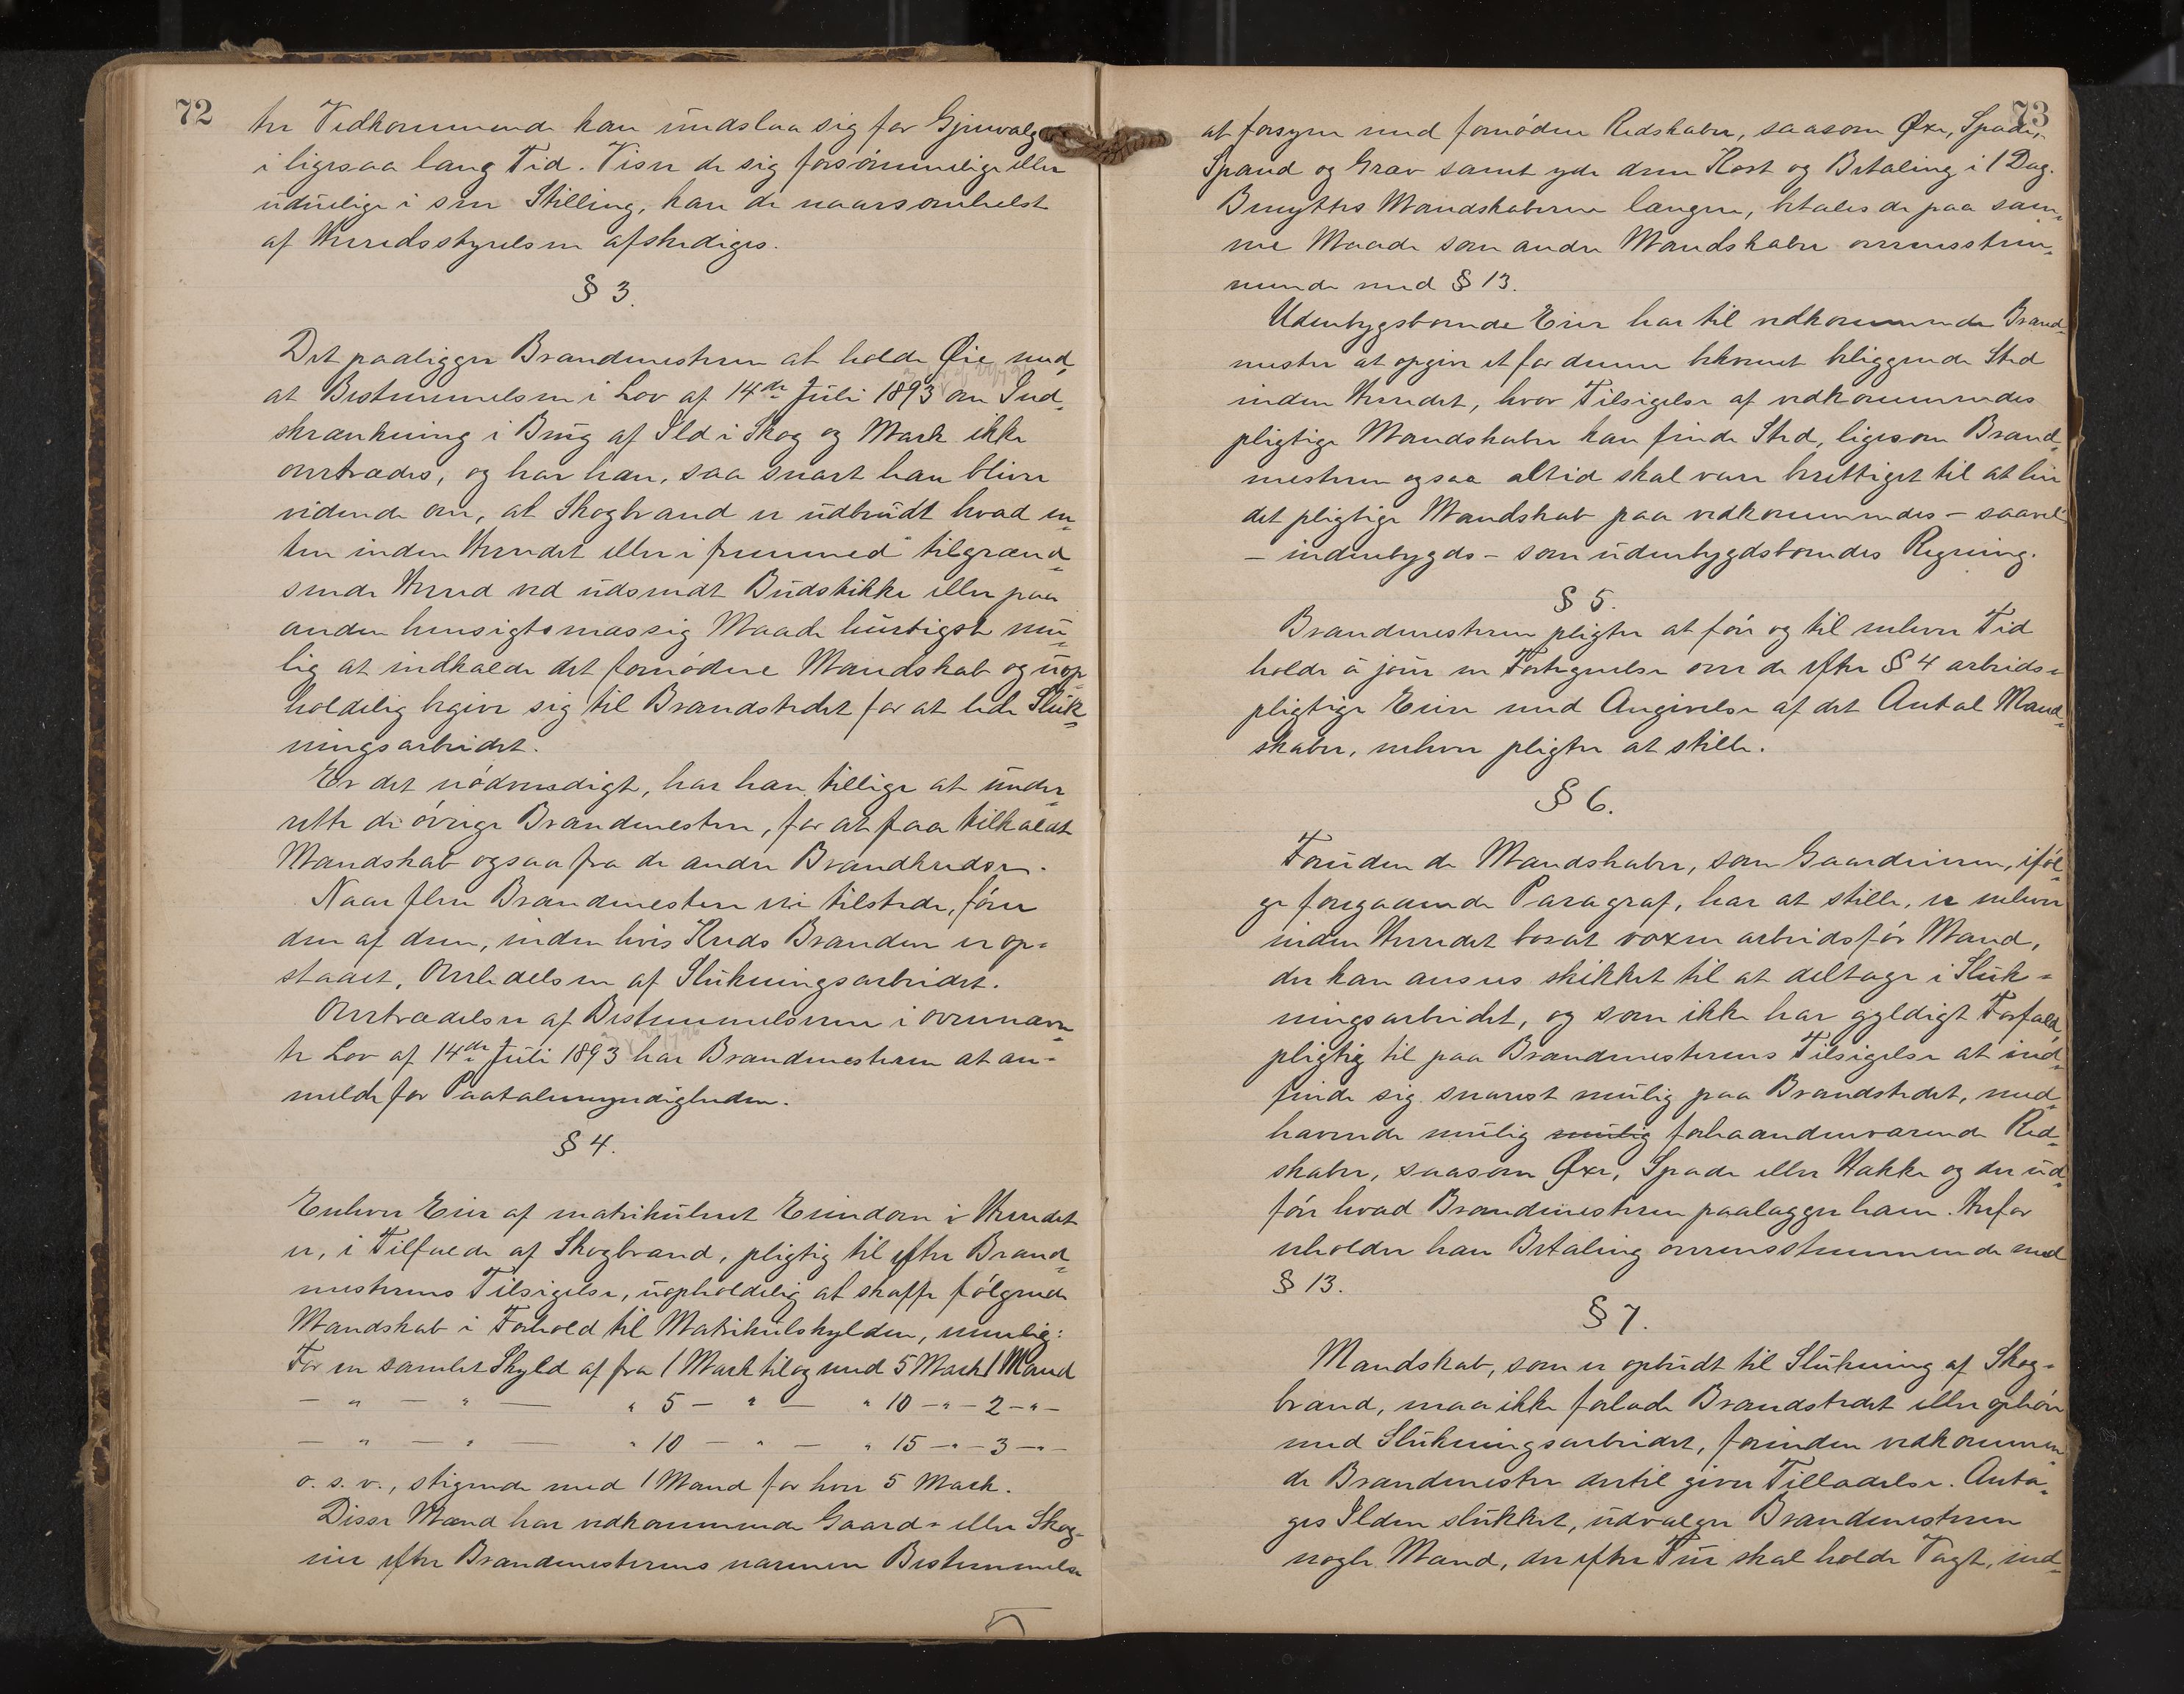 72
ter Vedkommende kan undslaa sig for Gjenvalg
i ligesaa lang Tid. Viser de sig forsømmelige eller
uduelige i sin Stilling, kan de naarsomhelst
af Herredsstyrelsen afskediges.
§ 3.
Det paaligger Brandmesteren at holde Øie med,
at Bestemmelsen i Lov af 14de Juli 1893 om Ind-
skrænkning i Brug af Ild i Skog og Mark ikke
overtrædes, og har han, saa snart han bliver
vidende om, at Skogbrand er udbrudt hvad en-
ten inden Herredet eller i fremmed tilgrænd-
sende Herred ved udsendt Budstikke eller paa
anden hensigtsmæssig Maade hurtigst mu-
lig at indkalde det fornødne Mandskab og uop-
holdelig begive sig til Brandstedet for at lede Sluk-
ningsarbeidet.
Er det nødvendigt, har han tillige at under-
rette de øvrige Brandmestere, for at faa tilkaldt
Mandskab ogsaa fra de andre Brandkredse.
Naar flere Brandmestere ere tilstede, fører
den af dem, inden hvis Kreds Branden er op-
staaet, Overledelsen af Slukningsarbeidet.
Overtrædelse af Bestemmelserne i ovennævn-
te Lov af 14de Juli 1893 har Brandmesteren at an-
melde for Paatalemyndigheden.
§ 4.
Enhver Eier af matrikuleret Eiendom i Herredet
er, i Tilfælde af Skogbrand, pligtig til efter Brand-
mesterens Tilsigelse, uopholdelig at skaffe følgende
Mandskab i Forhold til Matrikulskylden, nemlig:
For en samlet Skyld af fra 1 Mark til og med 5 Mark 1 Mand
— " — " — " 5 — " — " 10 — " — 2 — " —
— " — " — " 10 — " — " 15 — " — 3 — " —
o. s. v., stigende med 1 Mand for hver 5 Mark.
Disse Mænd har vedkommende Gaard- eller Skog-
eier efter Brandmesterens nærmere Bestemmelse
73
at forsyne med fornødne Redskaber, saasom Øxe, Spade,
Spand og Grav samt yde dem Kost og Betaling i 1 Dag.
Benyttes Mandskaberne længere, betales de paa sam-
me Maade som andre Mandskaber overensstem-
mende med § 13.
Udenbygsboende Eier har til vedkommende Brand-
mester at opgive et for denne bekvemt beliggende Sted
inden Herredet, hvor Tilsigelse af vedkommendes
pligtige Mandskaber kan finde Sted, ligesom Brand-
mesteren ogsaa altid skal være berettiget til at leie
det pligtige Mandskab paa vedkommendes - saavel
- indenbygds - som udenbygdsboendes Regning.
§ 5.
Brandmesteren pligter at før og til enhver Tid
holde à jour en Fortegnelse over de efter § 4 arbeids-
pligtige Eiere med Angivelse af det Antal Mand-
skaber, enhver pligter at stille.
§ 6.
Foruden de Mandskaber, som Gaardeieren, iføl-
ge foregaaende Paragraf, har at stille, er enhver
inden Herredet bosat voxen arbeidsfør Mand,
der kan ansees skikket til at deltage i Sluk-
ningsarbeidet, og som ikke har gyldigt Forfald
pligtig til paa Brandmesterens Tilsigelse at ind-
finde sig snarest mulig paa Brandstedet, med-
havende mulig mulig forhaandenværende Red-
skaber, saasom Øxe, Spade eller Hakke og der ud-
før hvad Brandmesteren paalægger ham. Herfor
erholder han Betaling overensstemmende med
§ 13.
§ 7.
Mandskab, som er opbudt til Slukning af Skog-
brand, maa ikke forlade Brandstedet eller ophøre
med Slukningsarbeidet, forinden vedkommen-
de Brandmester dertil giver Tilladelse. Anta-
ges Ilden slukket, udvælger Brandmesteren
nogle Mand, der efter Tur skal holde Vagt, ind-